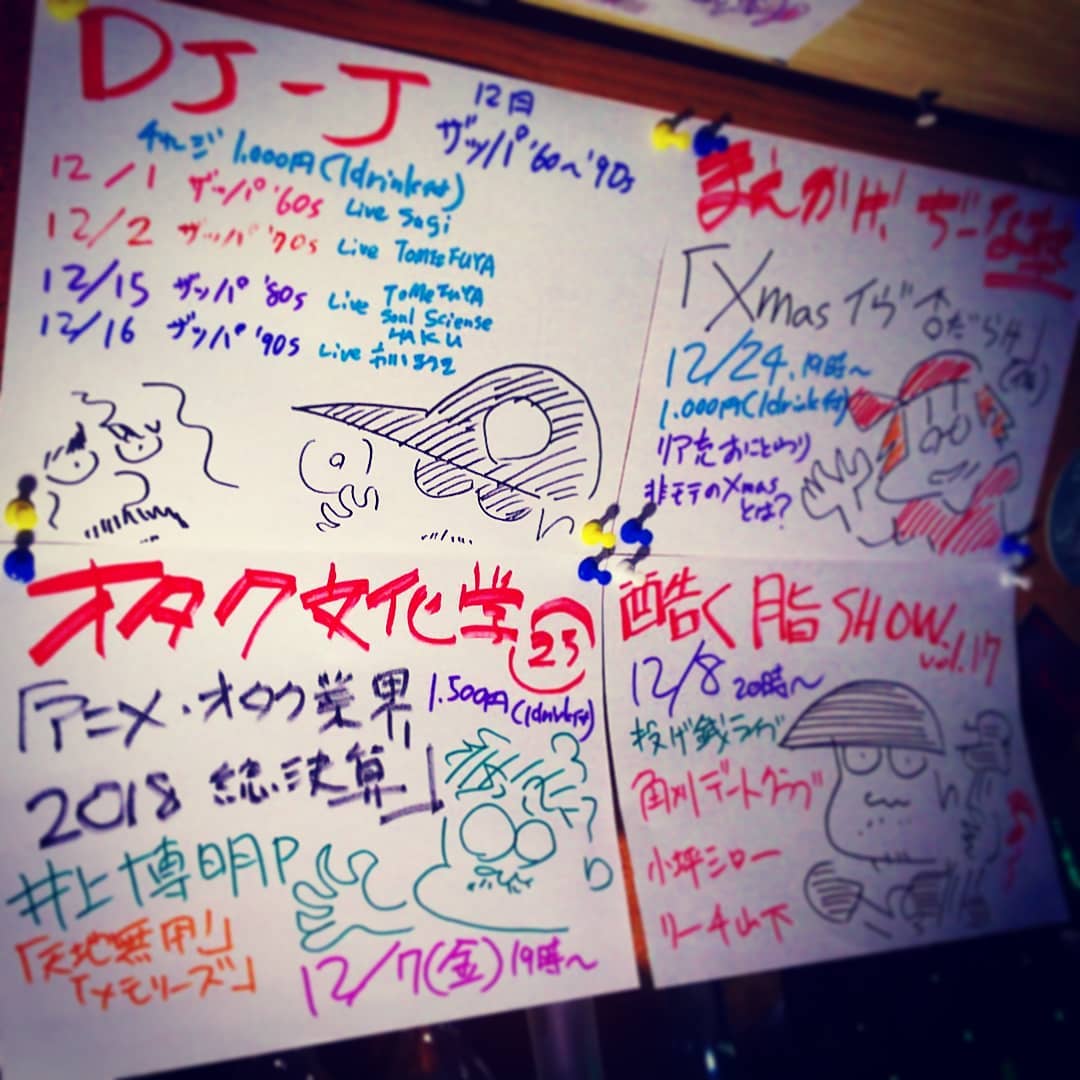 DJ-J
12日
ザッパ'60〜'90s
チャージ 1.000円(1drink付)
12/1 ザッパ'60s Live Sagi
12/2 ザッパ'70s Live TOMEFUYA
12/15 ザッパ'80s Live TOMEFUYA
Soul Sciense
HAKU
12/16 ザッパ'90s Live
オタク文化学 23
「アニメ・オタク業界
1.500円(1drink付)
2018 総決算」
井上博明P
「天地無用!」
「メモリーズ」
12/7(金)19時〜
まえかけ、ぢーな塾
「Xmasイヴ
12/24.19時〜
1.000円(1drink付)
リア充おことわり
非モテのXmas
とは?
酷く脂SHOW vol.17
12/8 20時〜
投げ銭ライブ
角刈デートクラブ
小坪シロー
リーチ山下